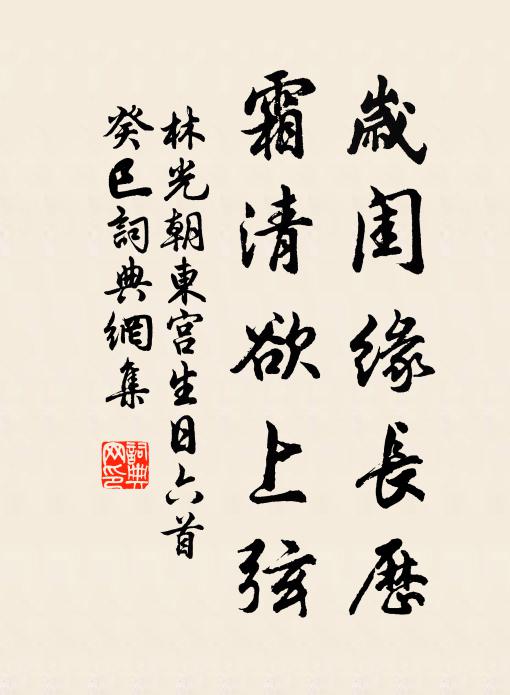 歲閏緣長曆
霜清欲上弦
林光朝東宮生日六首
癸巳詞典網集
詞典網印